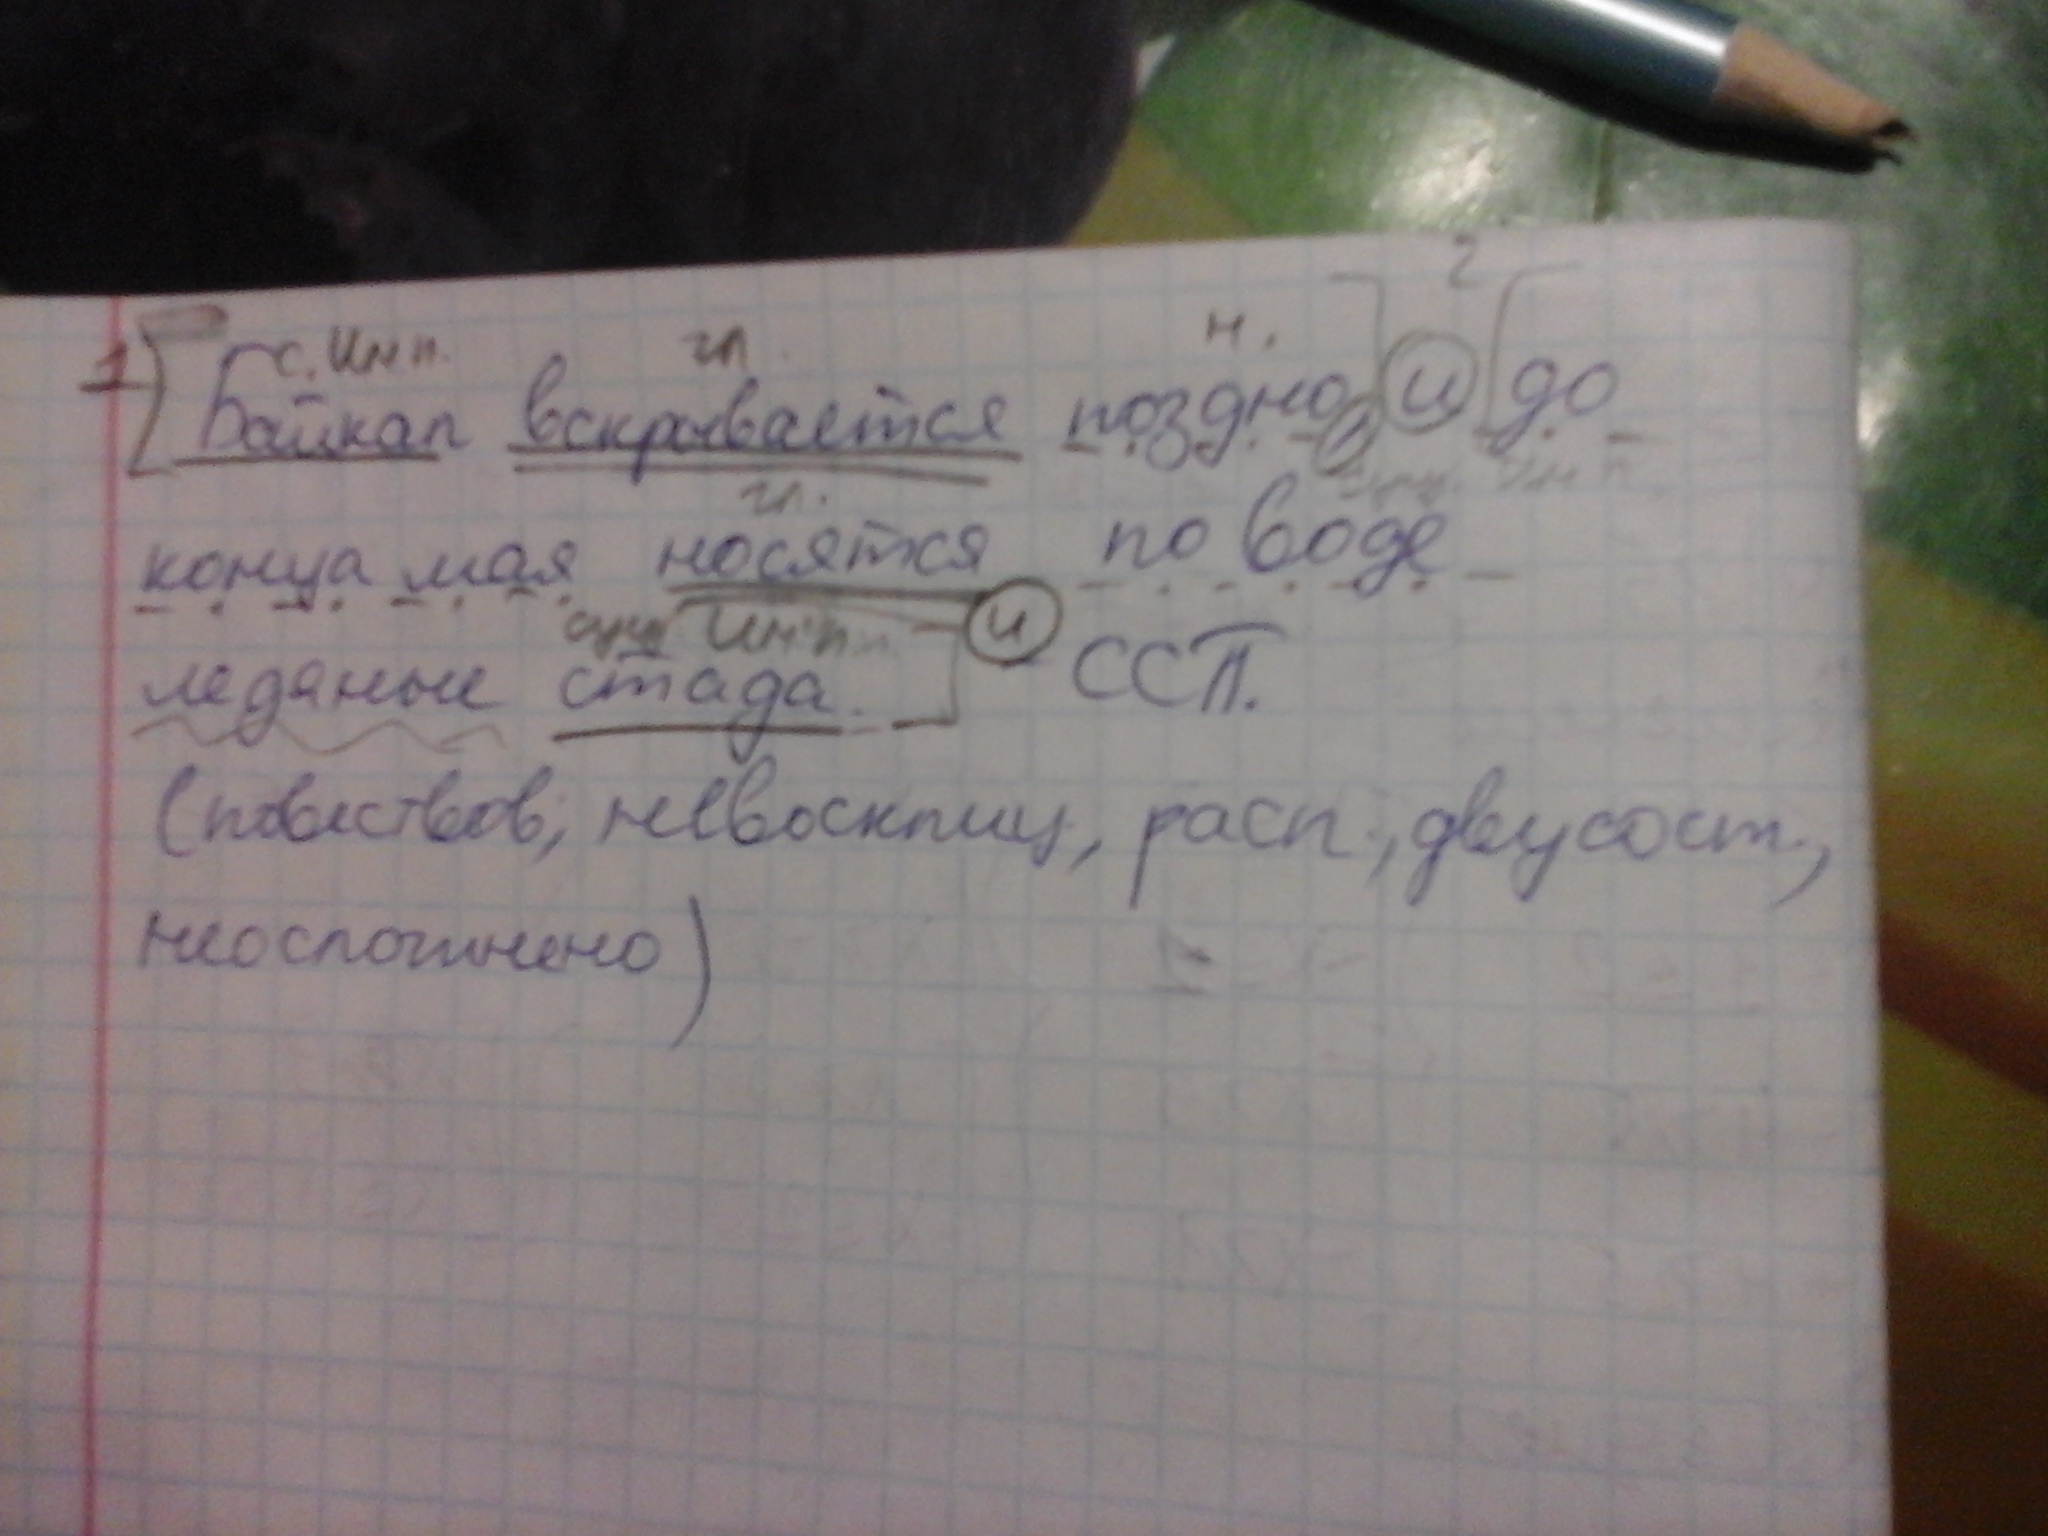 1 с. Им п. гл. н. 2
Байкал вскрывается поздно, и до
гл.
конца мая носятся по воде
сущ Им.п. и
ледяные стада. ССП.
(повеств, невосклиц, расп., двусост.,
неосложнено)